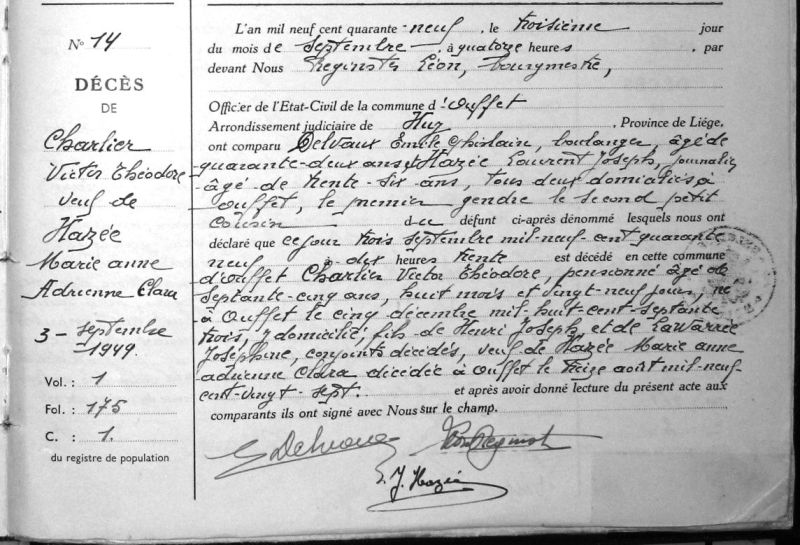 N° 14
DÉCÈS
DE
Charlier
Victor Théodore
veuf de
Hazée
Marie anne
Adrienne Clara
3 - septembre
- 1949.
Vol. : 1
Fol. : 175
C. : 1.
du registre de population
L'an mil neuf cent quarante-neuf, le troisième jour
du mois de septembre, à quatorze heures, par
devant Nous Reginster Léon, bourgmestre,
Officier de l'Etat-Civil de la commune d'Ouffet
Arrondissement judiciaire de Huy, Province de Liége,
ont comparu Delvaux Emile Ghislain, boulanger, âgé de
quarante-deux ans, & Hazée Laurent Joseph, journalier
âgé de trente-six ans, tous deux domiciliés à
Ouffet, le premier gendre le second petit
cousin d-u défunt ci-après dénommé lesquels nous ont
déclaré que ce jour trois septembre mil-neuf-cent quarante
neuf à dix heures trente est décédé en cette commune
d'Ouffet Charlier Victor Théodore, pensionné âgé de
septante-cinq ans, huit mois et vingt-neuf jours, né
à Ouffet le cinq décembre mil-huit-cent-septante
trois, y domicilié, fils de Henri Joseph et de Lawarrée
Joséphine, conjoints décédés, veuf de Hazée Marie anne
adrienne Clara décédée à Ouffet le treize août mil-neuf
cent-vingt-sept. et après avoir donné lecture du présent acte aux
comparants ils ont signé avec Nous sur le champ.
E Delvaux
Léon Reginster
L. J. Hazée